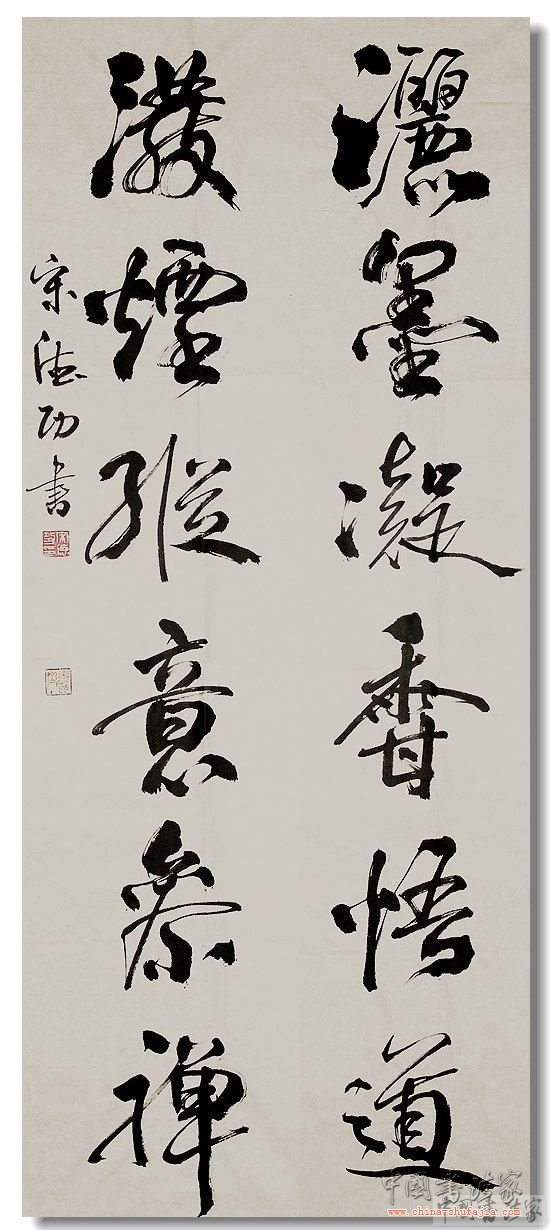 灑墨凝香悟道
潑煙縱意參禪
宋德功書
中國書法家
www.china-shufajia.com